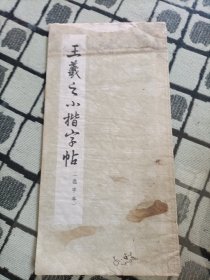 王羲之小楷字帖
（选字本）